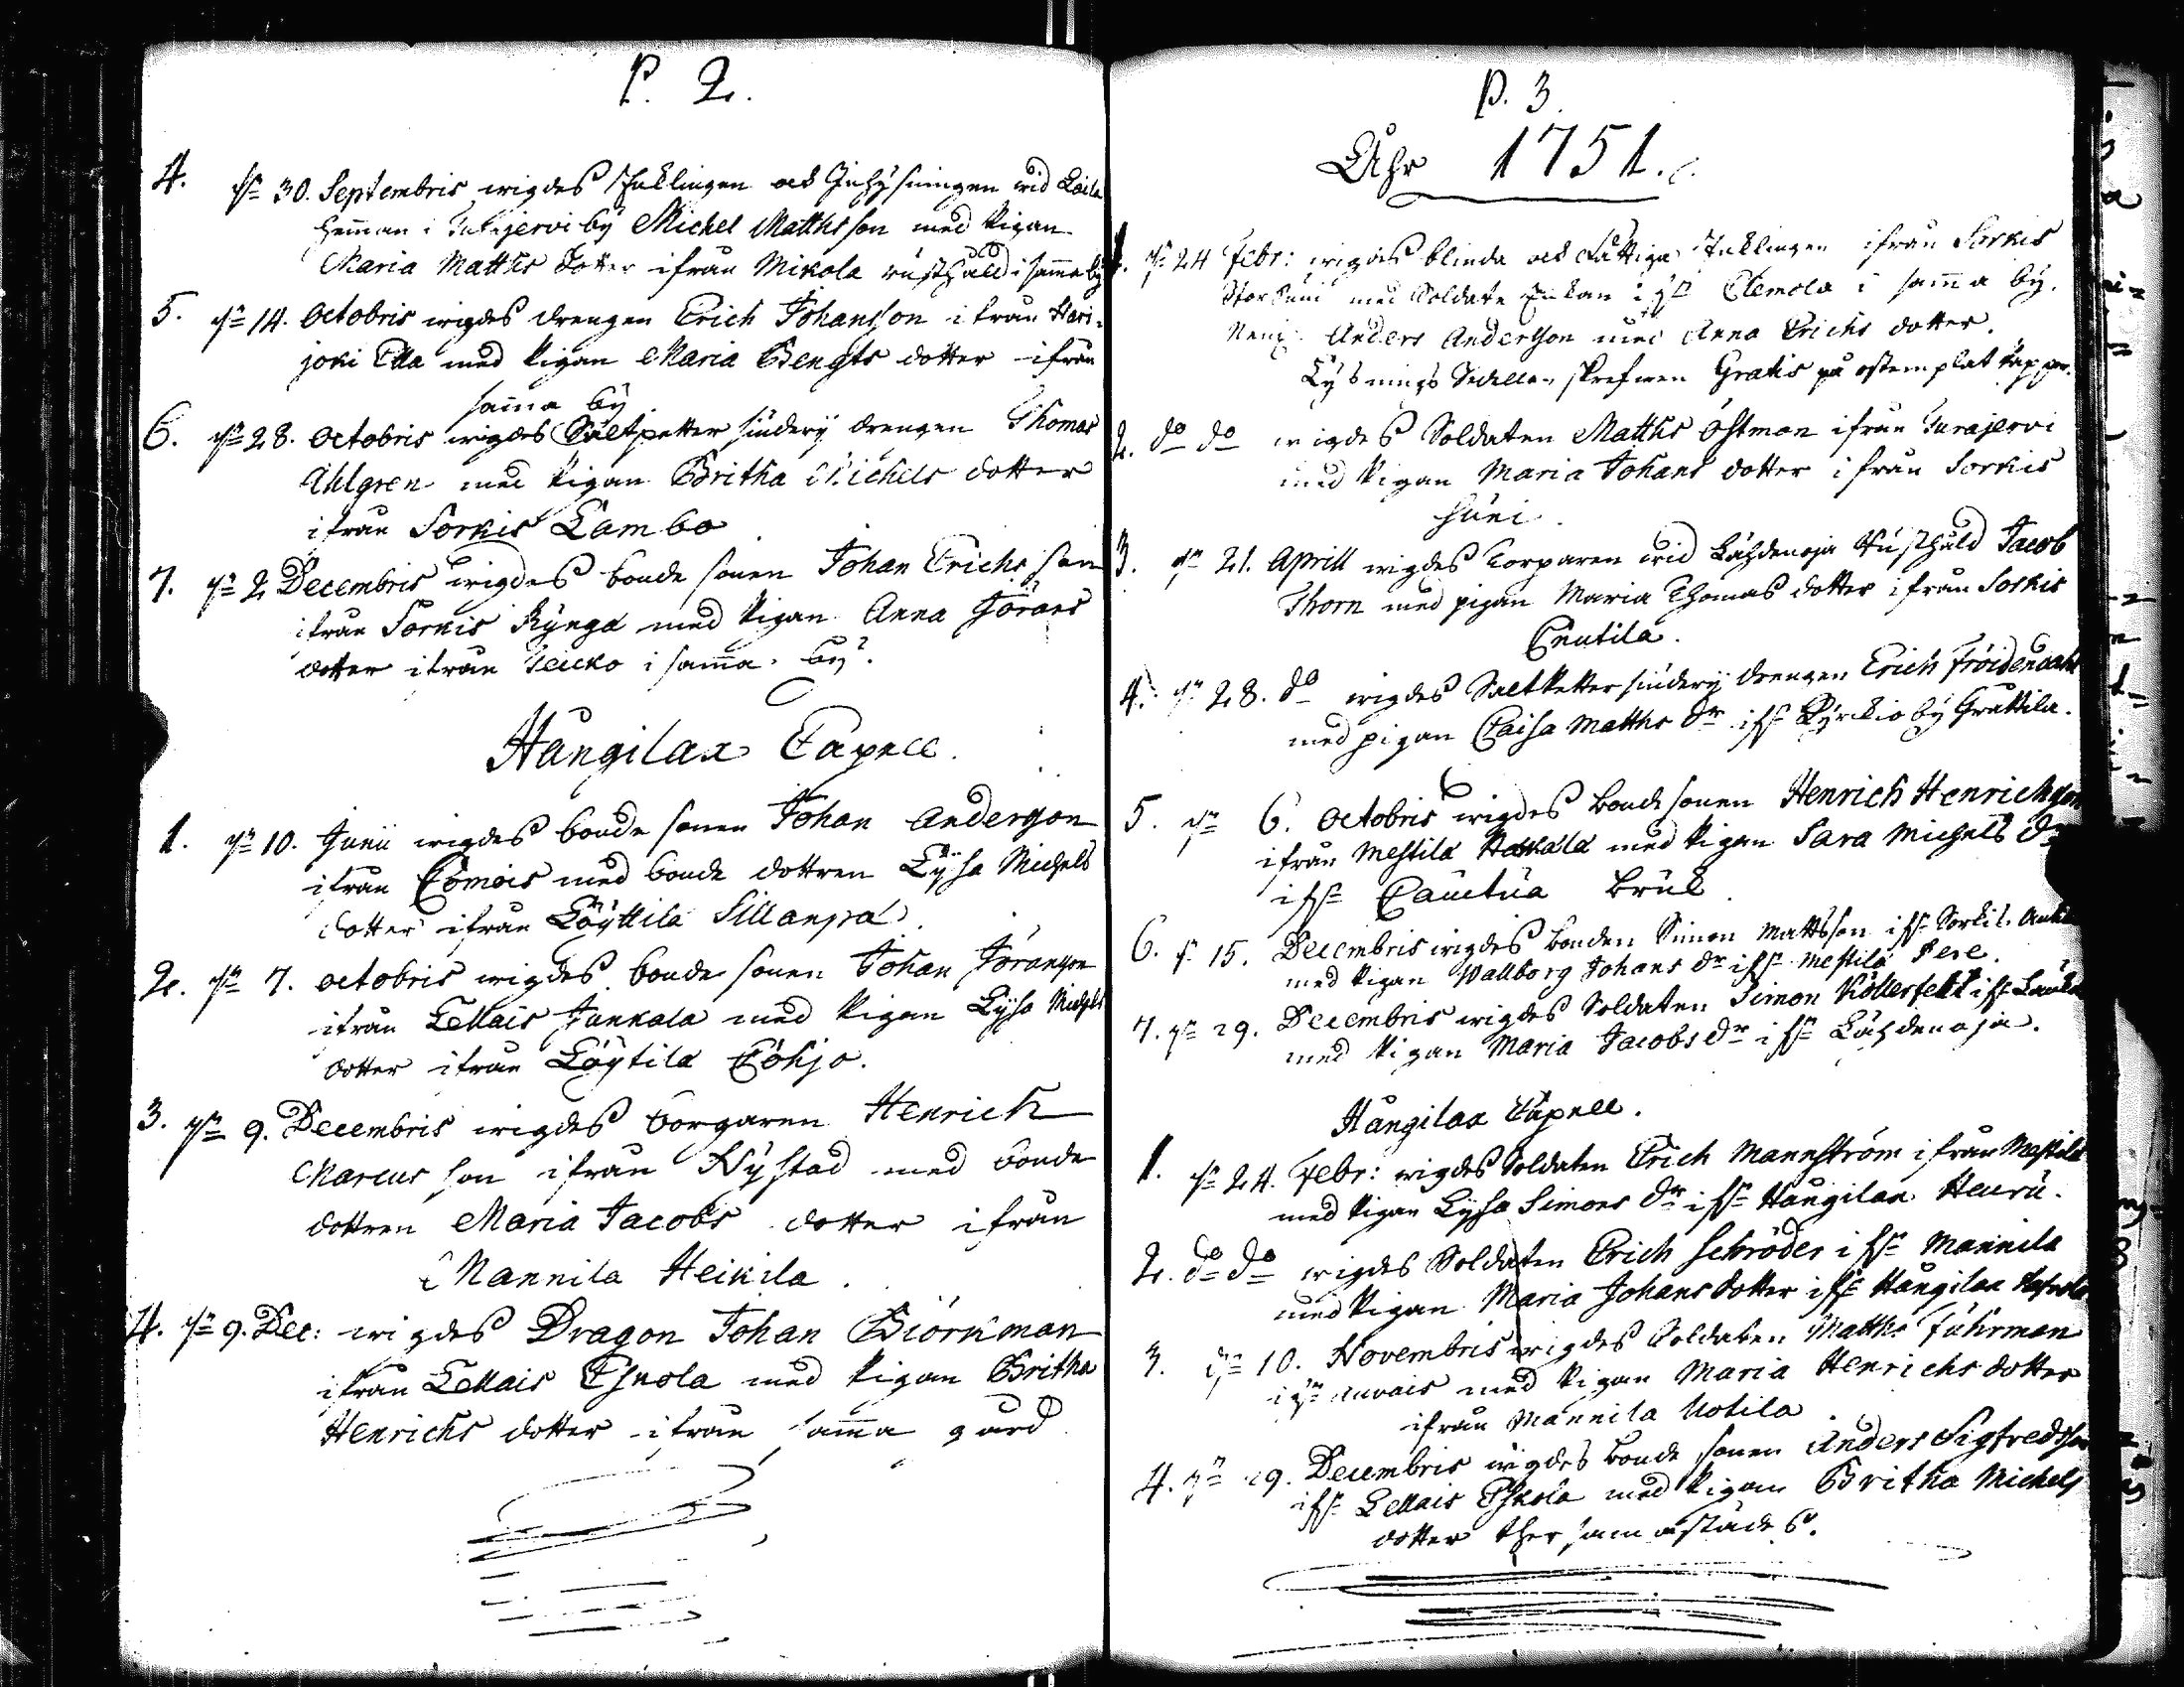 P. 2.
4. dn 30. Septembris wigdes Enklingen och Inhysningen wid Laila
hemman i Turajervi by Michel Matthsson med Pigan
Maria Matths Dotter ifrån Mikola rusthåld i samma by
5. dn 14. Octobris wigdes drengen Erich Johansson ifrån Hari-
joki Ella med Pigan Maria Bengts dotter ifrån
samma by
6. dn 28. Octobris wigdes Salpetter siudery drengen Thomas
Ahlgren med Pigan Britha Michels dotter
ifrån Sorkis Lambo
7. dn 2 Decembris wigdes bonde sonen Johan Erichs son
ifrån Sorkis Rynga med Pigan Anna Jörans
dotter ifrån Seicko i samma by.
Hangilax Capell.
1. dn 10. Junii wigdes bonde sonen Johan Andersson
ifrån Comois med bonde dottren Lysa Michels
dotter ifrån Löyttilä Sillanpä
2. dn 7. octobris wigdes bonde sonen Johan Jöransson
ifrån Lellais Junkala med Pigan Lysa Michels
dotter ifrån Löytilä Cöhjo.
3. dn 9. Decembris wigdes borgaren Henrich
Marcus son ifrån Nystad med bonde
dottren Maria Jacobs dotter ifrån
Mannila Heikila.
4. dn 9. Dec: wigdes Dragon Johan Biörkman
ifrån Lellais Eskola med Pigan Britha
Henrichs dotter ifrån samma gård
P. 3.
Åhr 1751.
1. dn 24 Febr: wigdes blinda och fattiga Enklingen ifrån Sorkis
Storsuni med Soldate Enkan ifn Clemola i samma by.
Anders Andersson med Anna Erichs dotter.
Lysnings Sedellen skrefwen Gratis på ostemplat papper.
2. do do wigdes Soldaten Matths Östman ifrån Turajervi
med Pigan Maria Johans dotter ifrån Sorkis
Suni.
3. dn 21. Aprill wigdes Torparen wid Lähdenoja Rusthåld Jacob
Thorn med pigan Maria Thomas dotter ifrån Sorkis
Cnutila.
4. dn 28. do wigdes Saltpetter siudery drengen Erich Fröidendahl
med pigan Caisa Matths dr ifn Kyrckio by Gruttila.
5. dn 6. Octobris wigdes bonde sonen Henrich Henrichsson
ifrån Mestilä med Pigan Sara Michels dr
ifn Cautua Bruk
6. d 15. Decembris wigdes bonden Simon Mattsson ifn Sorkis
med Pigan Wallborg Johans dr ifn Mestilä Pere.
7. dn 29. Decembris wigdes Soldaten Simon Köllerfelt ifn
med Pigan Maria Jacobs dr ifn Lähdenoja.
Hangilax Capell.
1. dn 24. Febr: wigdes Soldaten Erich Mannström ifrån Mestilä
med Pigan Lysa Simons dr ifn Hangilax Heurù.
2. do do wigdes Soldaten Erich Schröder ifn Mannila
med Pigan Maria Johans dotter ifn Hangilax
3. dn 10. Novembris wigdes Soldaten Matths Fuhrman
ifn Auvais med Pigan Maria Henrichs dotter
ifrån Mannila Uotila.
4. dn 29. Decembris wigdes bonde sonen Anders Sigfredsson
ifn Lellais Eskola med Pigan Britha Michels
dotter ther samma städes.